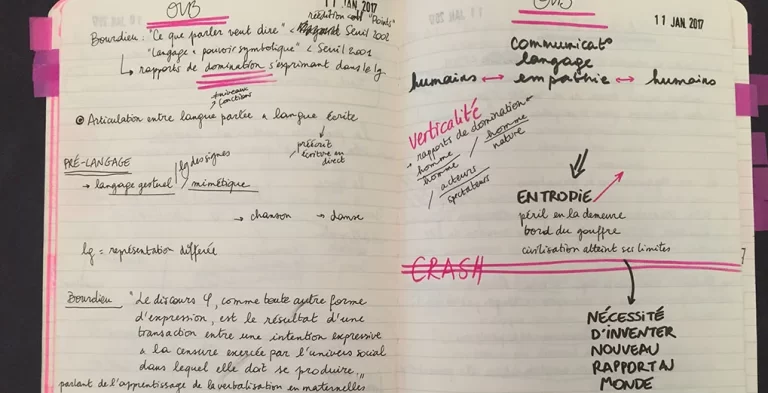 OVB
11 JAN. 2017
réédition coll "Points"
Bourdieu: "Ce que parler veut dire" < Seuil 2002
"langage & pouvoir symbolique" < Seuil 2001
↳ rapports de domination s'exprimant dans le lg
≠ niveaux
fonctions
Articulation entre langue parlée & langue écrite
préécrit
/ écriture en
direct
PRÉ-LANGAGE
lg des signes
→ langage gestuel / mimétique
→ chanson → danse
lg = représentation différée
Bourdieu "Le discours φ, comme toute autre forme
d'expression, est le résultat d'une
transaction entre une intention expressive
& la censure exercée par l'univers social
dans lequel elle doit se produire."
parlant de l'apprentissage de la verbalisation en maternelles
OVB
11 JAN. 2017
communicat°
langage
humains ↔ empathie ↔ humains
verticalité
→ rapports de domination
homme / homme
homme nature
/ acteurs
spectateurs
ENTROPIE
péril en la demeure
bord du gouffre
civilisation atteint ses limites
CRASH
NÉCESSITÉ
D'INVENTER
NOUVEAU
RAPPORT AU
MONDE